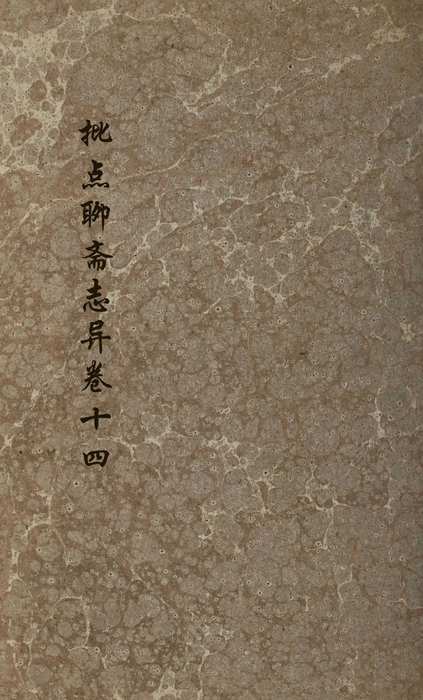 批点聊斋志异卷十四